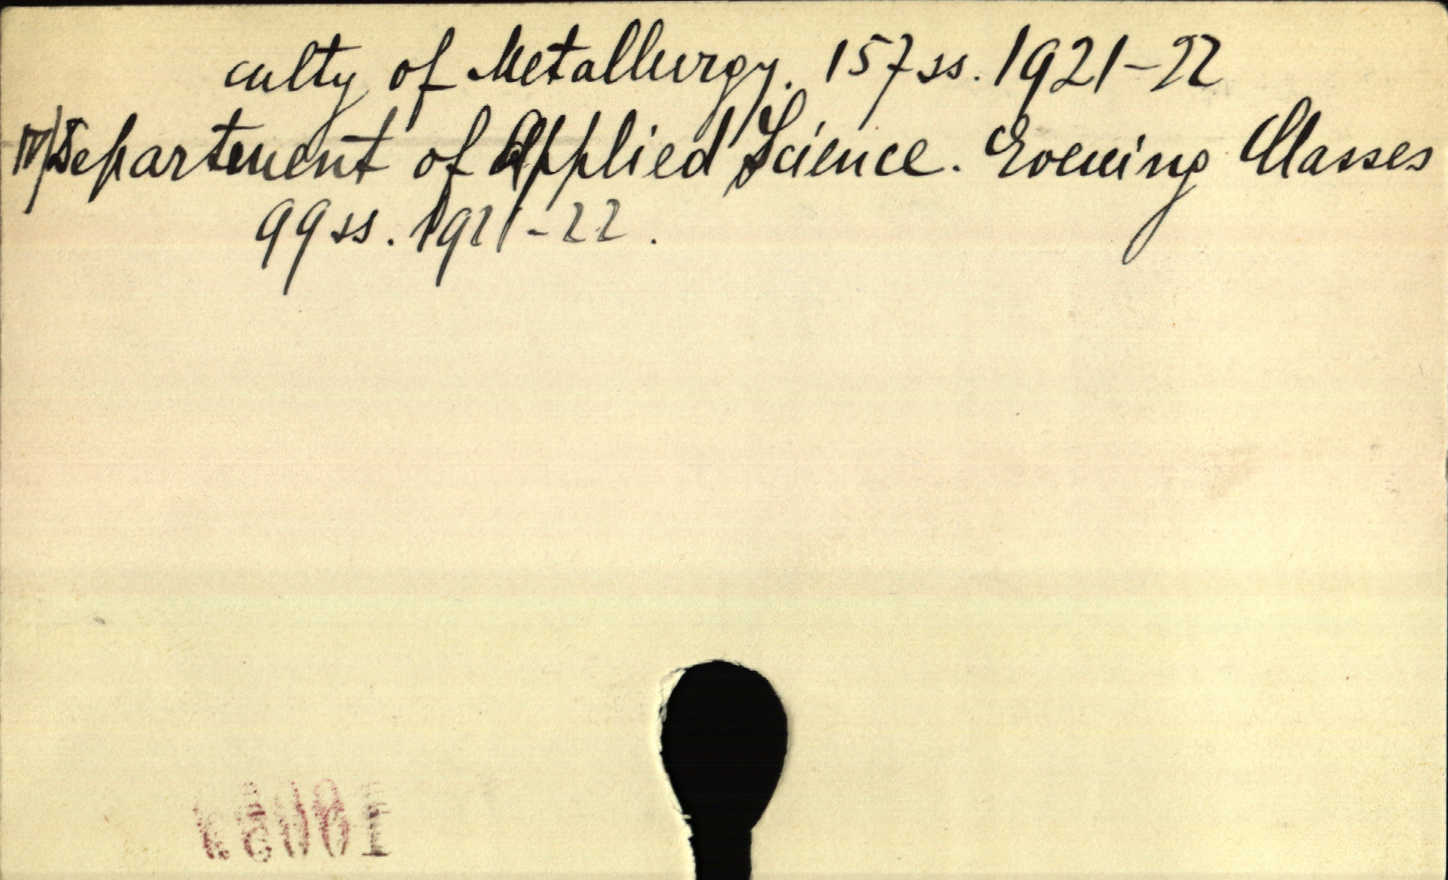 culty of Metallurgy. 157 ss. 1921-22
IV/Department of Applied Science. Evening Classes
99 ss. 1921-22.